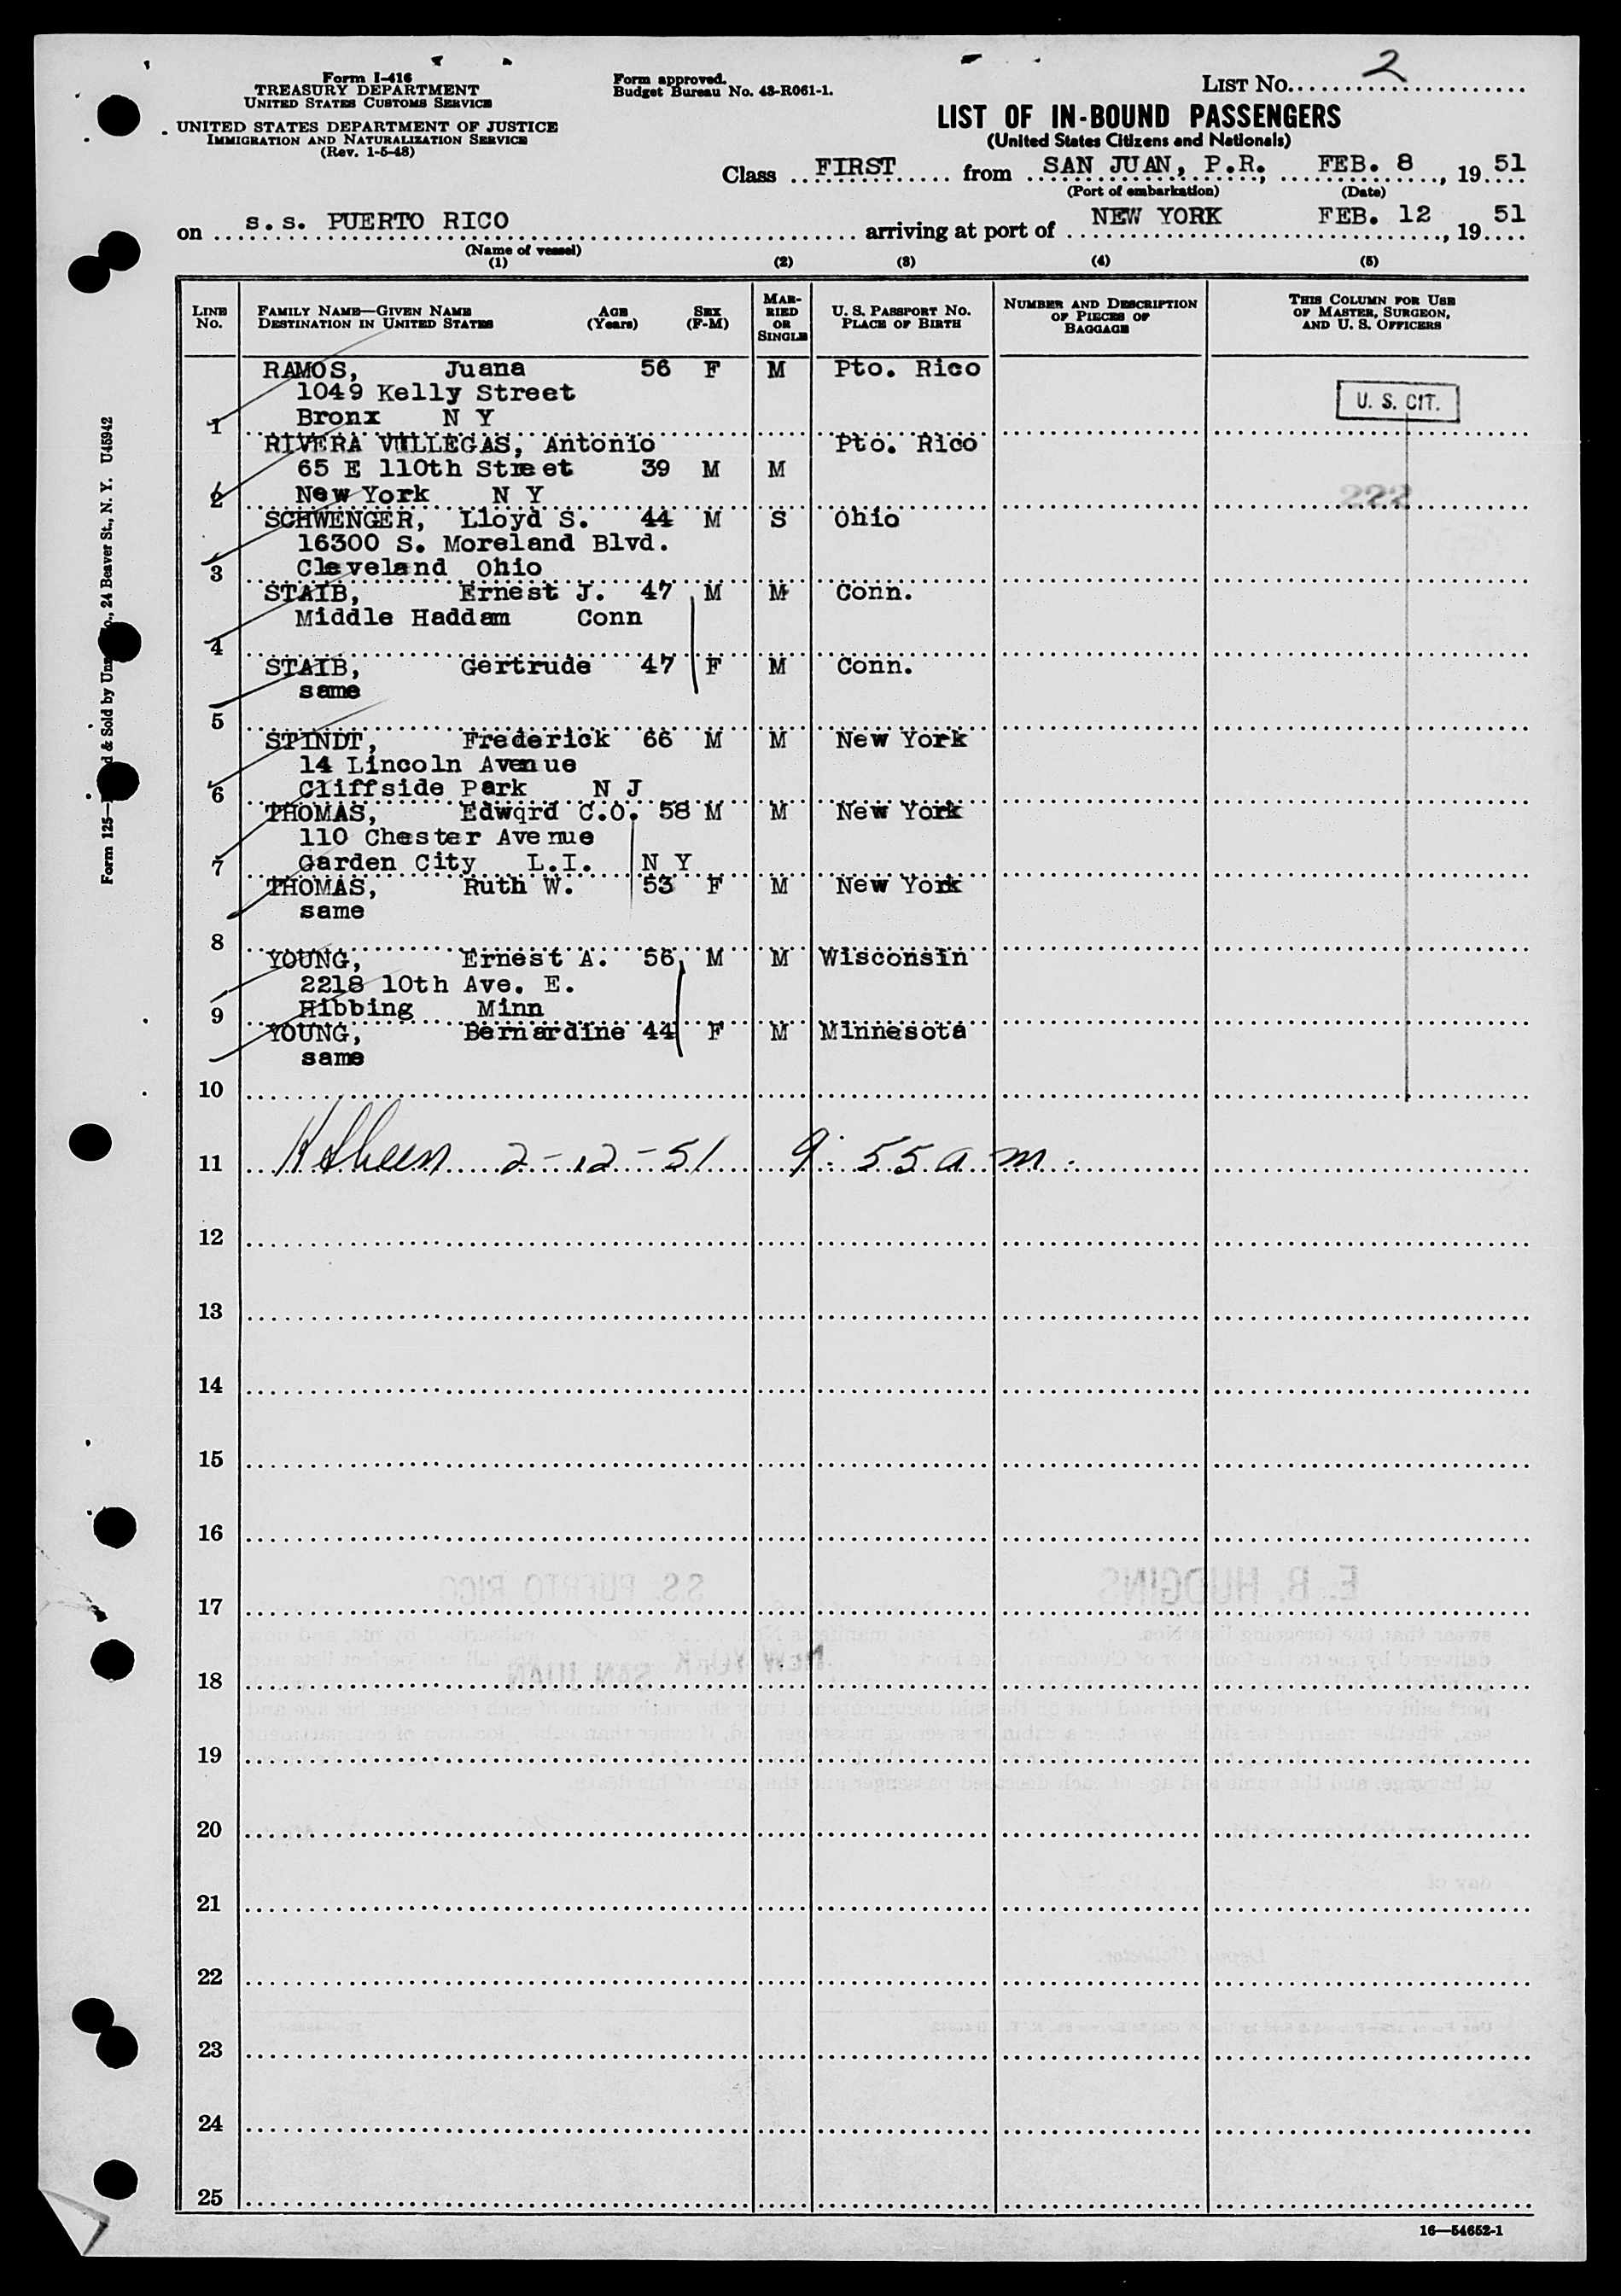 Form I-416
TREASURY DEPARTMENT
UNITED STATES CUSTOMS SERVICE
UNITED STATES DEPARTMENT OF JUSTICE
IMMIGRATION AND NATURALIZATION SERVICE
(Rev. 1-5-48)
Form approved.
Budget Bureau No. 43-R061-1.
LIST NO. 2
LIST OF IN-BOUND PASSENGERS
(United States Citizens and Nationals)
Class FIRST from SAN JUAN, P.R., FEB. 8, 19 51
(Port of embarkation) (Date)
on s.s. PUERTO RICO arriving at port of NEW YORK FEB. 12, 19 51
(Name of vessel)
(1) (2) (3) (4) (5)
LINE NO. FAMILY NAME—GIVEN NAME DESTINATION IN UNITED STATES AGE (Years) SEX (F-M) MARRIED OR SINGLE U. S. PASSPORT NO. PLACE OF BIRTH NUMBER AND DESCRIPTION OF PIECES OF BAGGAGE THIS COLUMN FOR USE OF MASTER, SURGEON, AND U. S. OFFICERS
RAMOS, Juana 56 F M Pto. Rico
1049 Kelly Street U. S. CIT.
1 Bronx N Y
RIVERA VILLEGAS, Antonio Pto. Rico
65 E 110th Street 39 M M
2 New York N Y 222
SCHWENGER, Lloyd S. 44 M S Ohio
16300 S. Moreland Blvd.
3 Cleveland Ohio
STAIB, Ernest J. 47 M M Conn.
Middle Haddam Conn
4
STAIB, Gertrude 47 F M Conn.
same
5
STINDT, Frederick 66 M M New York
14 Lincoln Avenue
6 Cliffside Park N J
THOMAS, Edwqrd C.O. 58 M M New York
110 Chester Avenue
7 Garden City L.I. N Y
THOMAS, Ruth W. 53 F M New York
same
8
YOUNG, Ernest A. 56 M M Wisconsin
2218 10th Ave. E.
9 Hibbing Minn
YOUNG, Bernardine 44 F M Minnesota
same
10
11 2-12-51 9:55 am.
12
13
14
15
16
17
18
19
20
21
22
23
24
25
16—54652-1
E. B. HUDGINS
SS. PUERTO RICO
NEW YORK SAN JUAN
24 Beaver St., N. Y. U45942
Form 125